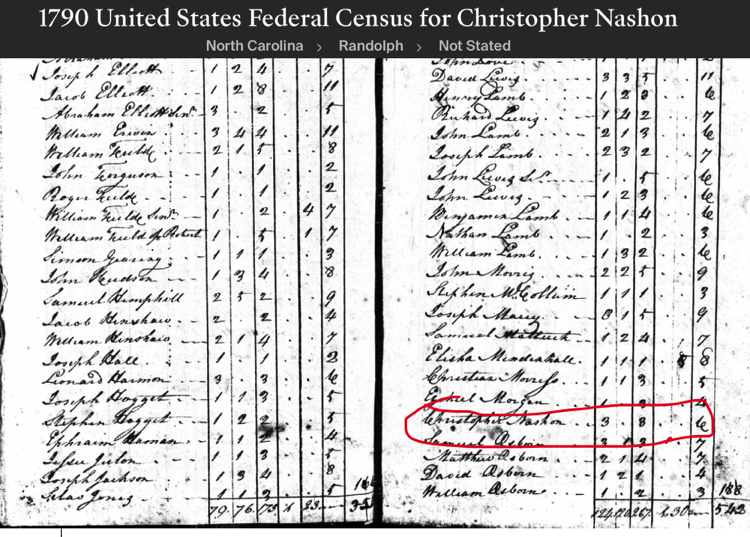 1790 United States Federal Census for Christopher Nashon
North Carolina > Randolph > Not Stated
Joseph Elliott 1 2 4 . . 7
Jacob Elliott 1 2 8 . . 11
Abraham Elliott Senr 3 . 2 . . 5
William Erwin 3 4 4 . . 11
William Feild 2 1 5 . . 8
John Ferguson 1 . 1 . . 2
Roger Feild 1 . 1 . . 2
William Feild Senr 1 . 2 . 4 7
William Feild of Robert 1 . 5 . 1 7
Simeon 1 1 1 . . 3
John Hudson 1 3 4 . . 8
Samuel Hemphill 2 5 2 . . 9
Jacob Hinshaw 2 . 2 . . 4
William Hinshaw 2 1 4 . . 7
Joseph Hall 1 . 1 . . 2
Leonard Harmon 3 . 3 . . 6
Joseph Hogget 1 1 3 . . 5
Stephen Hogget 1 2 2 . . 5
Ephraim 1 1 2 . . 4
1 1 3 . . 5
Joseph Jackson 1 3 4 . . 8
Silas Jones 1 1 3 . . 5
79 76
David Lewis 3 3 5 . . 11
Henry Lamb 1 2 3 . . 6
Richard Lewis 1 4 2 . . 7
John Lamb 2 1 3 . . 6
Joseph Lamb 2 3 2 . . 7
John Lewis Sr 1 . 5 . . 6
John Lewis 1 2 3 . . 6
Benjamin Lamb 1 1 4 . . 6
Nathan Lamb 1 . 2 . . 3
William Lamb 1 3 2 . . 6
John 2 2 5 . . 9
Stephen McCollum 1 1 1 . . 3
Joseph Macy 3 1 5 . . 9
Samuel 1 2 4 . . 7
Elisha Mendenhall 1 1 1 . . 8
Christian 1 1 3 . . 5
Morgan
Christopher Nashon 3 . 3 . . 6
Samuel Osborn 3 1 3 . . 7
Matthew Osborn 2 1 4 . . 7
David Osborn 1 2 1 . . 4
William Osborn 1 . 2 . . 3 188
542